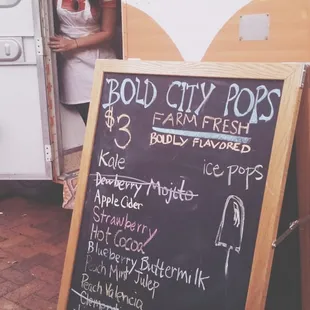 BOLD CITY POPS
$3 FARM FRESH
BOLDLY FLAVORED
Kale ice pops
Dewberry Mojito
Apple Cider
Strawberry
Hot Cocoa
Blueberry Buttermilk
Peach Mint Julep
Peach Valencia
Clementine